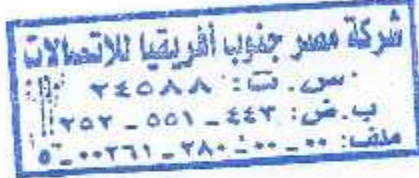 شركة مصر جنوب أفريقيا للاتصالات
س. ت: ٢٤٥٨٨
ب. ض: ٤٤٣ - ٥٥١ - ٢٥٢
ملف: ٠٠ - ٠٠ - ٢٨٠ - ٠٠٢٦١ - ٥